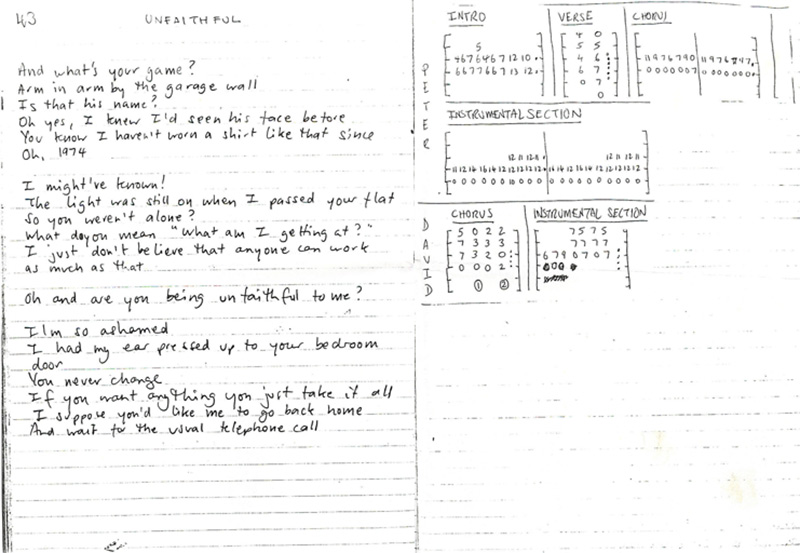 43 UNFAITHFUL
And what's your game?
Arm in arm by the garage wall
Is that his name?
Oh yes, I knew I'd seen his face before
You know I haven't worn a shirt like that since
Oh, 1974
I might've known!
The light was still on when I passed your flat
So you weren't alone?
What do you mean "What am I getting at?"
I just don't believe that anyone can work
as much as that
Oh and are you being unfaithful to me?
I'm so ashamed
I had my ear pressed up to your bedroom
door
You never change
If you want anything you just take it all
I suppose you'd like me to go back home
And wait to the usual telephone call
PETER
INTRO
5
4 6 7 6 4 6 7 12 10
6 6 7 7 6 6 7 13 12
VERSE
4 0
5 5
4 6
6 7
0 7
0
CHORUS
11 9 7 6 7 9 0 11 9 7 6 7 4 7
0 0 0 0 0 0 7 0 0 0 0 0 0 0
INSTRUMENTAL SECTION
12 11 12 11 12 11 12 11
11 12 14 12 16 14 12 12 12 12 14 14 12 14 14 12 12 12 12
0 0 0 0 0 0 0 10 0 0 0 0 0 0 0 0 0 0 0
DAVID
CHORUS
5 0 2 2
7 3 3 3
7 3 2 0
0 0 0 2
1 2
INSTRUMENTAL SECTION
7 5 7 5
7 7 7 7
6 7 9 0 7 0 7